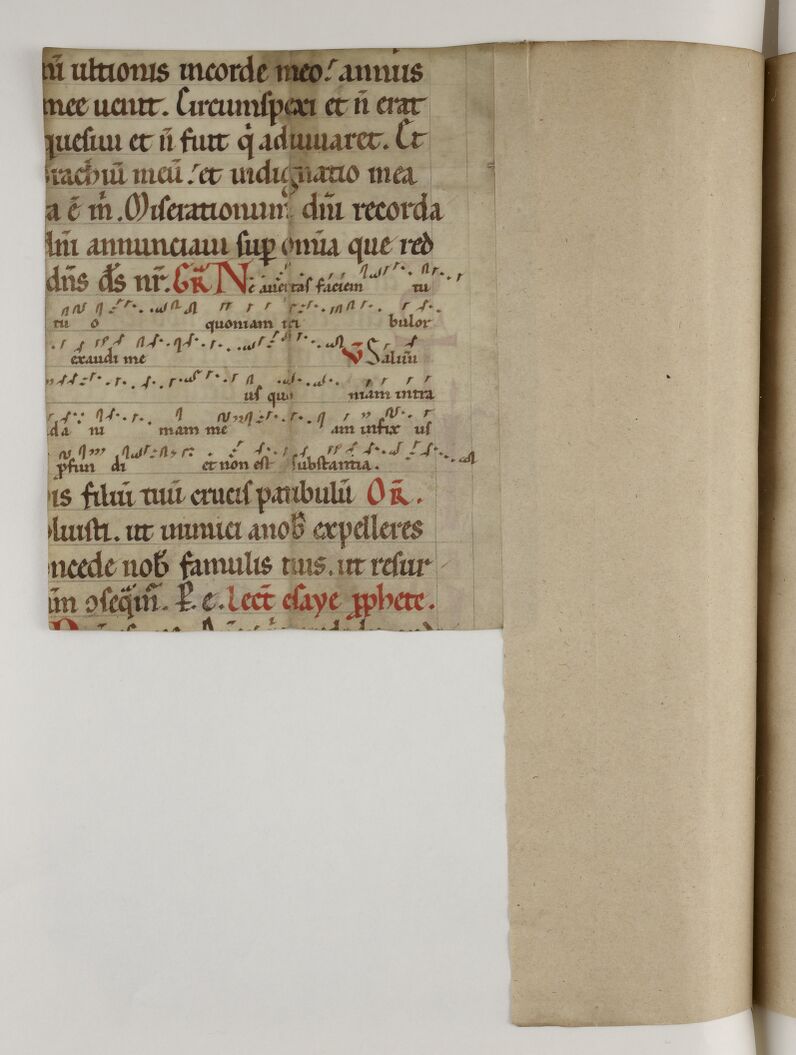 nī ultionis incorde meo. annus
mee uenit. Circumspexi et n̄ erat
quesiui et n̄ fuit q̇ adiuuaret. Et
brachiū meū. et indignatio mea
a ē m̄. Miserationum dn̄i recorda
dn̄i annunciaui sup om̄ia que red
dn̄s ds̄ nr̄. GR̄ Ne auertas faciem tu
tu o quoniam tri bulor
exaudi me V̄ Saluū
us quo niam intra
da ni mam me am infix us
ꝓfun di et non est substantia.
is filiū tuū crucis patibulū OR̄.
luisti. ut inimici anob̄ expelleres
ncede nob̄ famulis tuis. ut resur
ꝯseq̄m̄. P. e. Lect̄ esaye ꝓphete.